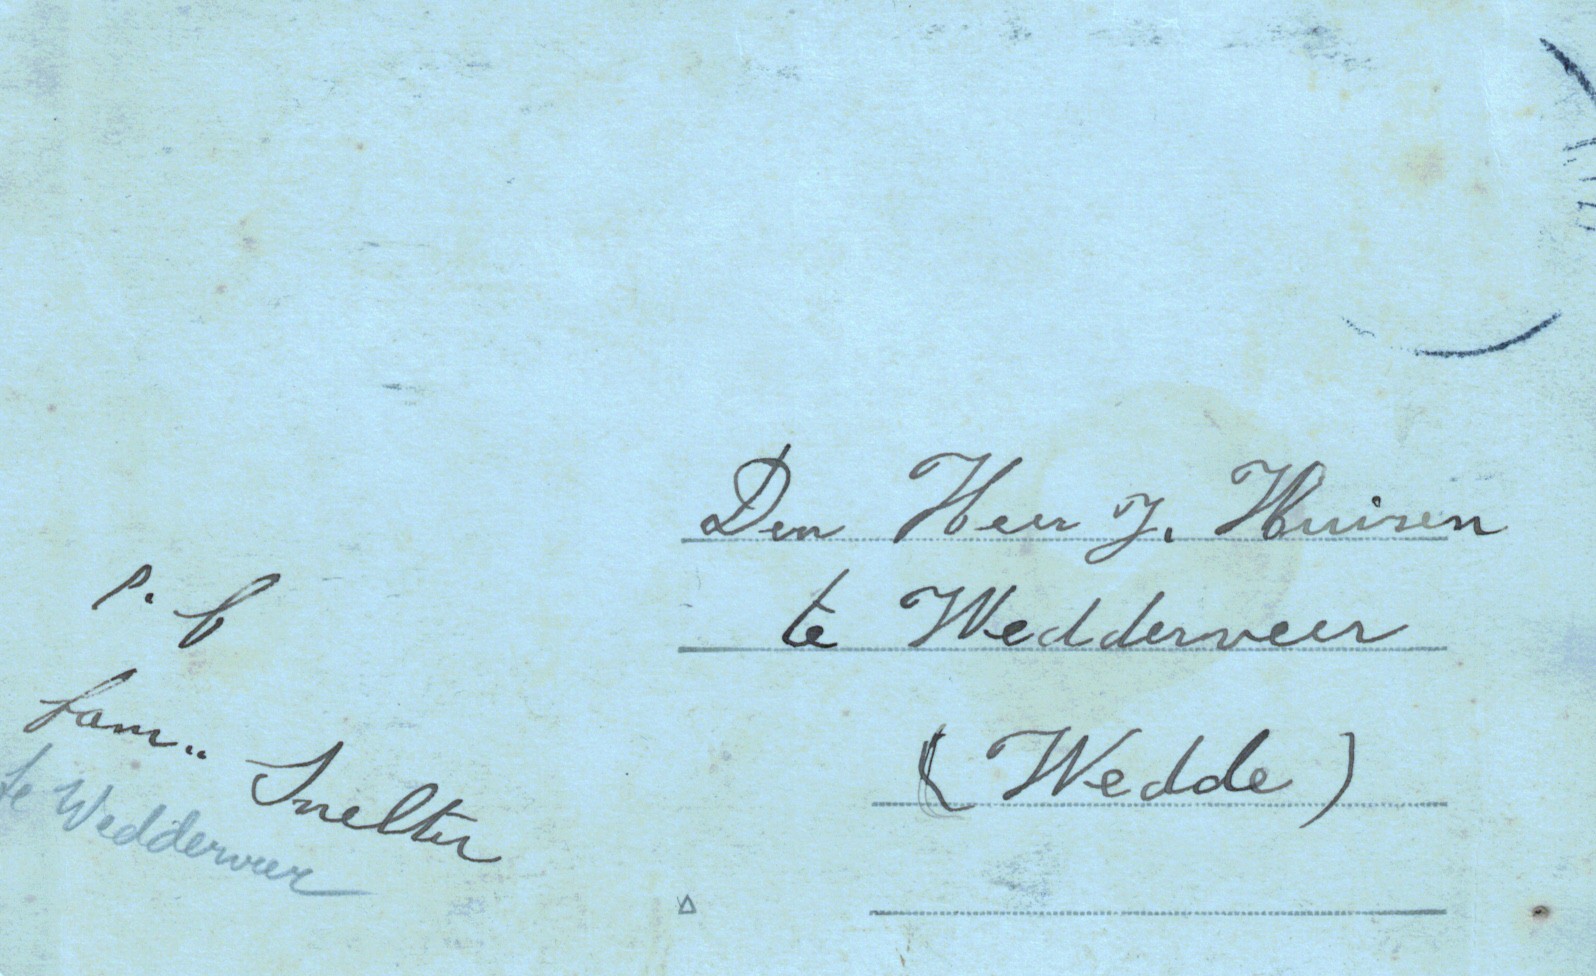 Den Heer J. Huisen
te Wedderveer
(Wedde)
p. f
fam.. Snelter
te Wedderveer